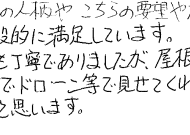 の人柄や こちらの要望や
般的に満足しています。
も丁寧でありましたが、屋根
でドローン等で見せてくれ
と思います。